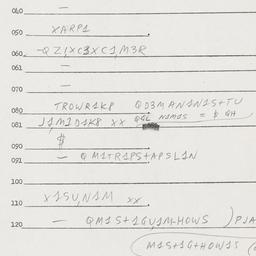 040 —
050 XARP1
060 -QZ1XC3XC1M3R
061 —
070 —
080 TROWR1K8 QD3MAN1N1S+TU
081 J1M1D1K8 XX N1M1S = $ GH
$
090
091 — QM1TR1PS+APSL1N
100
110 X1SU,N1M XX
120 — QM1S+1GU1M-HOWS ) PJA
M1S+1G+HOW1S (